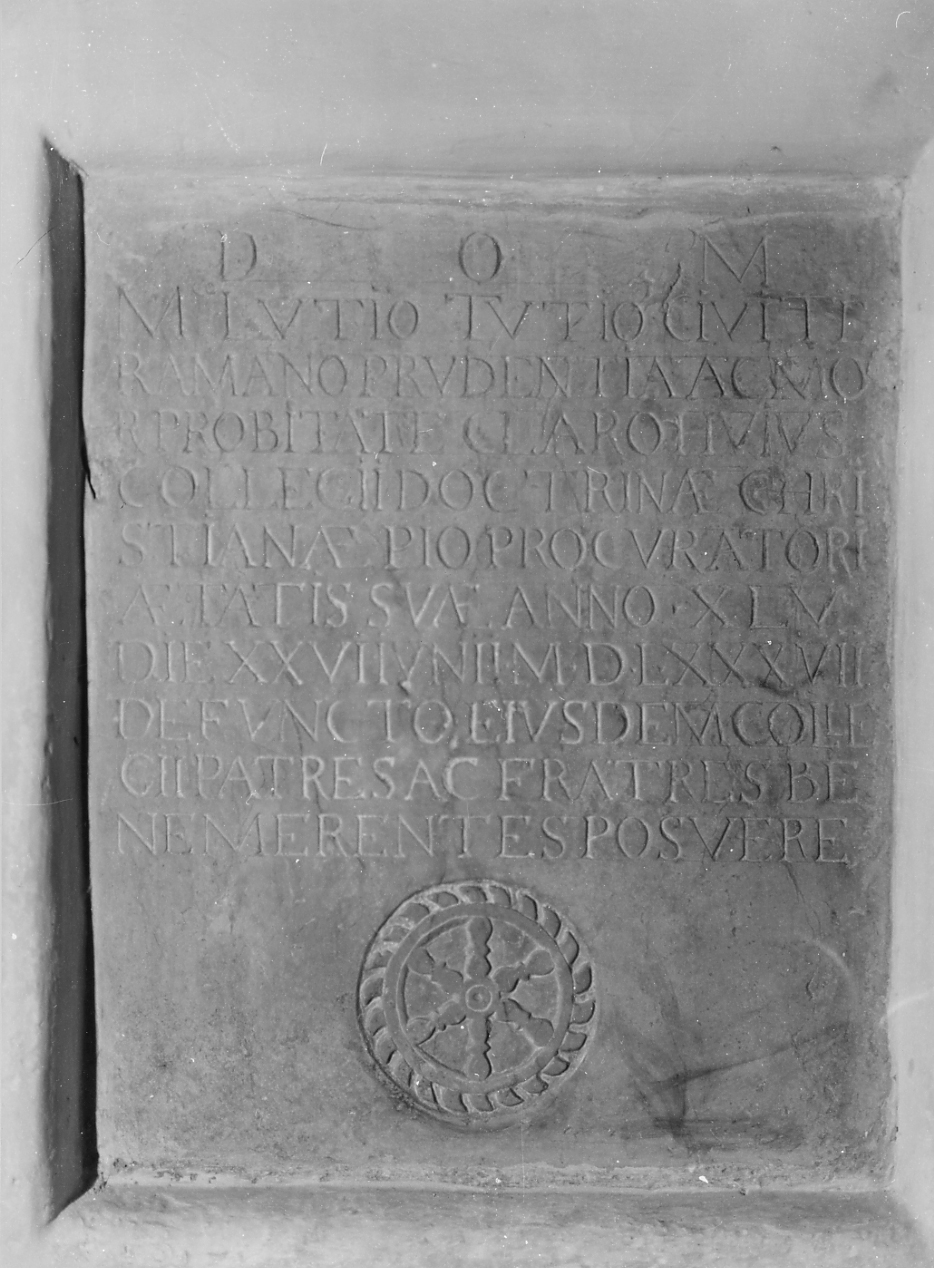 D O M
M LVTIO TVTIO CIVI TE
RAMANO PRVDENTIA AC MO
R PROBITATE CLARO HVIVS
COLLEGII DOCTRINÆ CHRI
STIANÆ PIO PROCVRATORI
ÆTATIS SVÆ ANNO XLV
DIE XXVII IVNII M D LXXXVII
DEFVNCTO EIVSDEM COLLE
GII PATRES AC FRATRES BE
NEMERENTES POSVERE